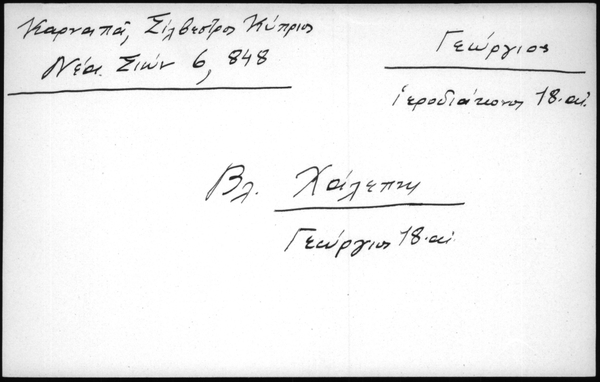 Καρναπᾶ, Σίλβεστρος Κύπριος
Νέα Σιών 6, 848
Γεώργιος
ἱεροδιάκονος 18. αἰ.
Βλ. Χάλεπη
Γεώργιος 18. αἰ.